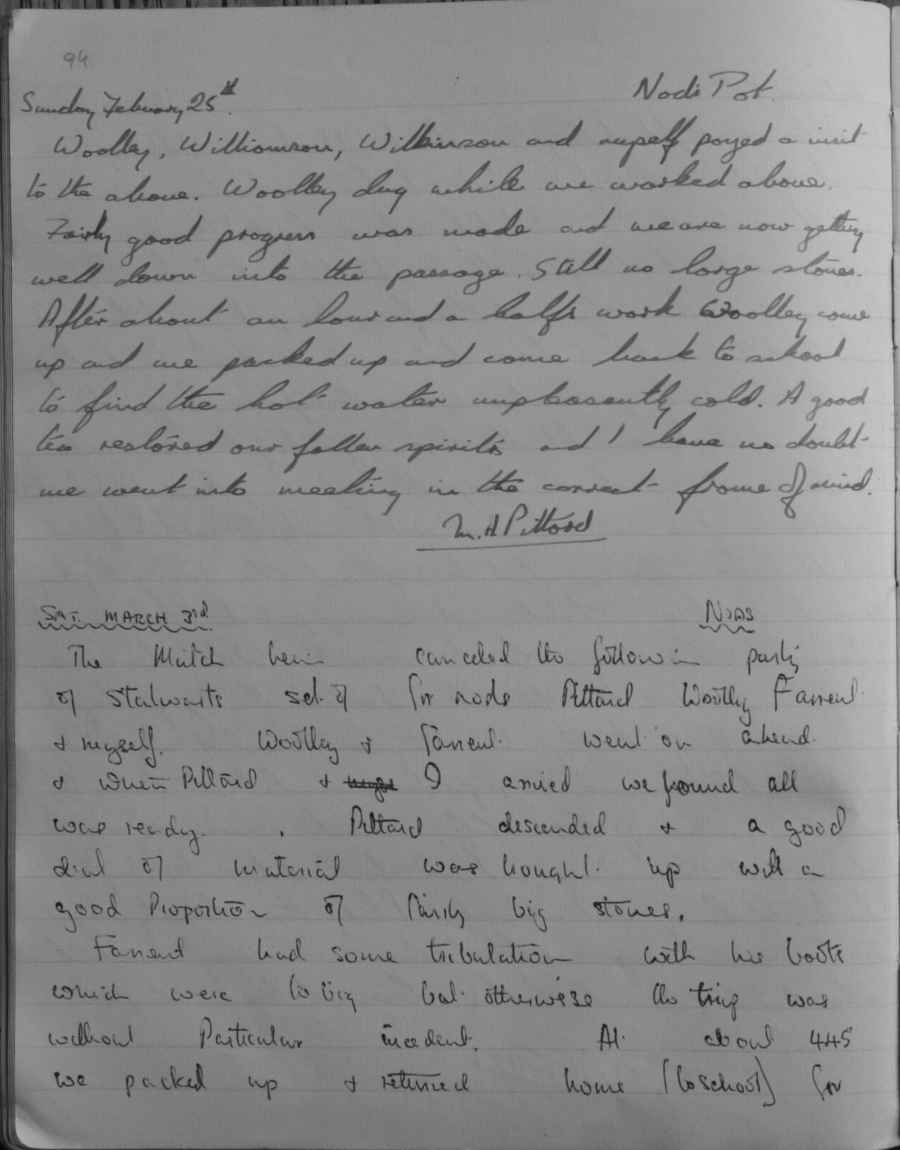 94
Sunday February 25th. Nods Pot.
Woolley, Williamson, Wilkinson and myself payed a visit
to the above. Woolley dug while we worked above.
Fairly good progress was made and we are now getting
well down into the passage. Still no large stones.
After about an hour and a half's work Woolley came
up and we packed up and came back to school
to find the hot water unpleasantly cold. A good
tea restored our fallen spirits and I have no doubt
we went into meeting in the correct frame of mind.
M.H Pittard
SAT. MARCH 3rd NODS
The Match bein canceled the followin party
of stalwarts set of for nods Pittard Woolley Farrent
& myself. Woolley & Farrent went on ahead
& when Pittard & I arrived we found all
was ready. Pittard descended & a good
deal of material was bought up with a
good Proportion of fairly big stones.
Farrent had some tribulation with his boots
which were to big but otherwise the trip was
without Particular incedent. At about 445
we packed up & returned home (to school) for